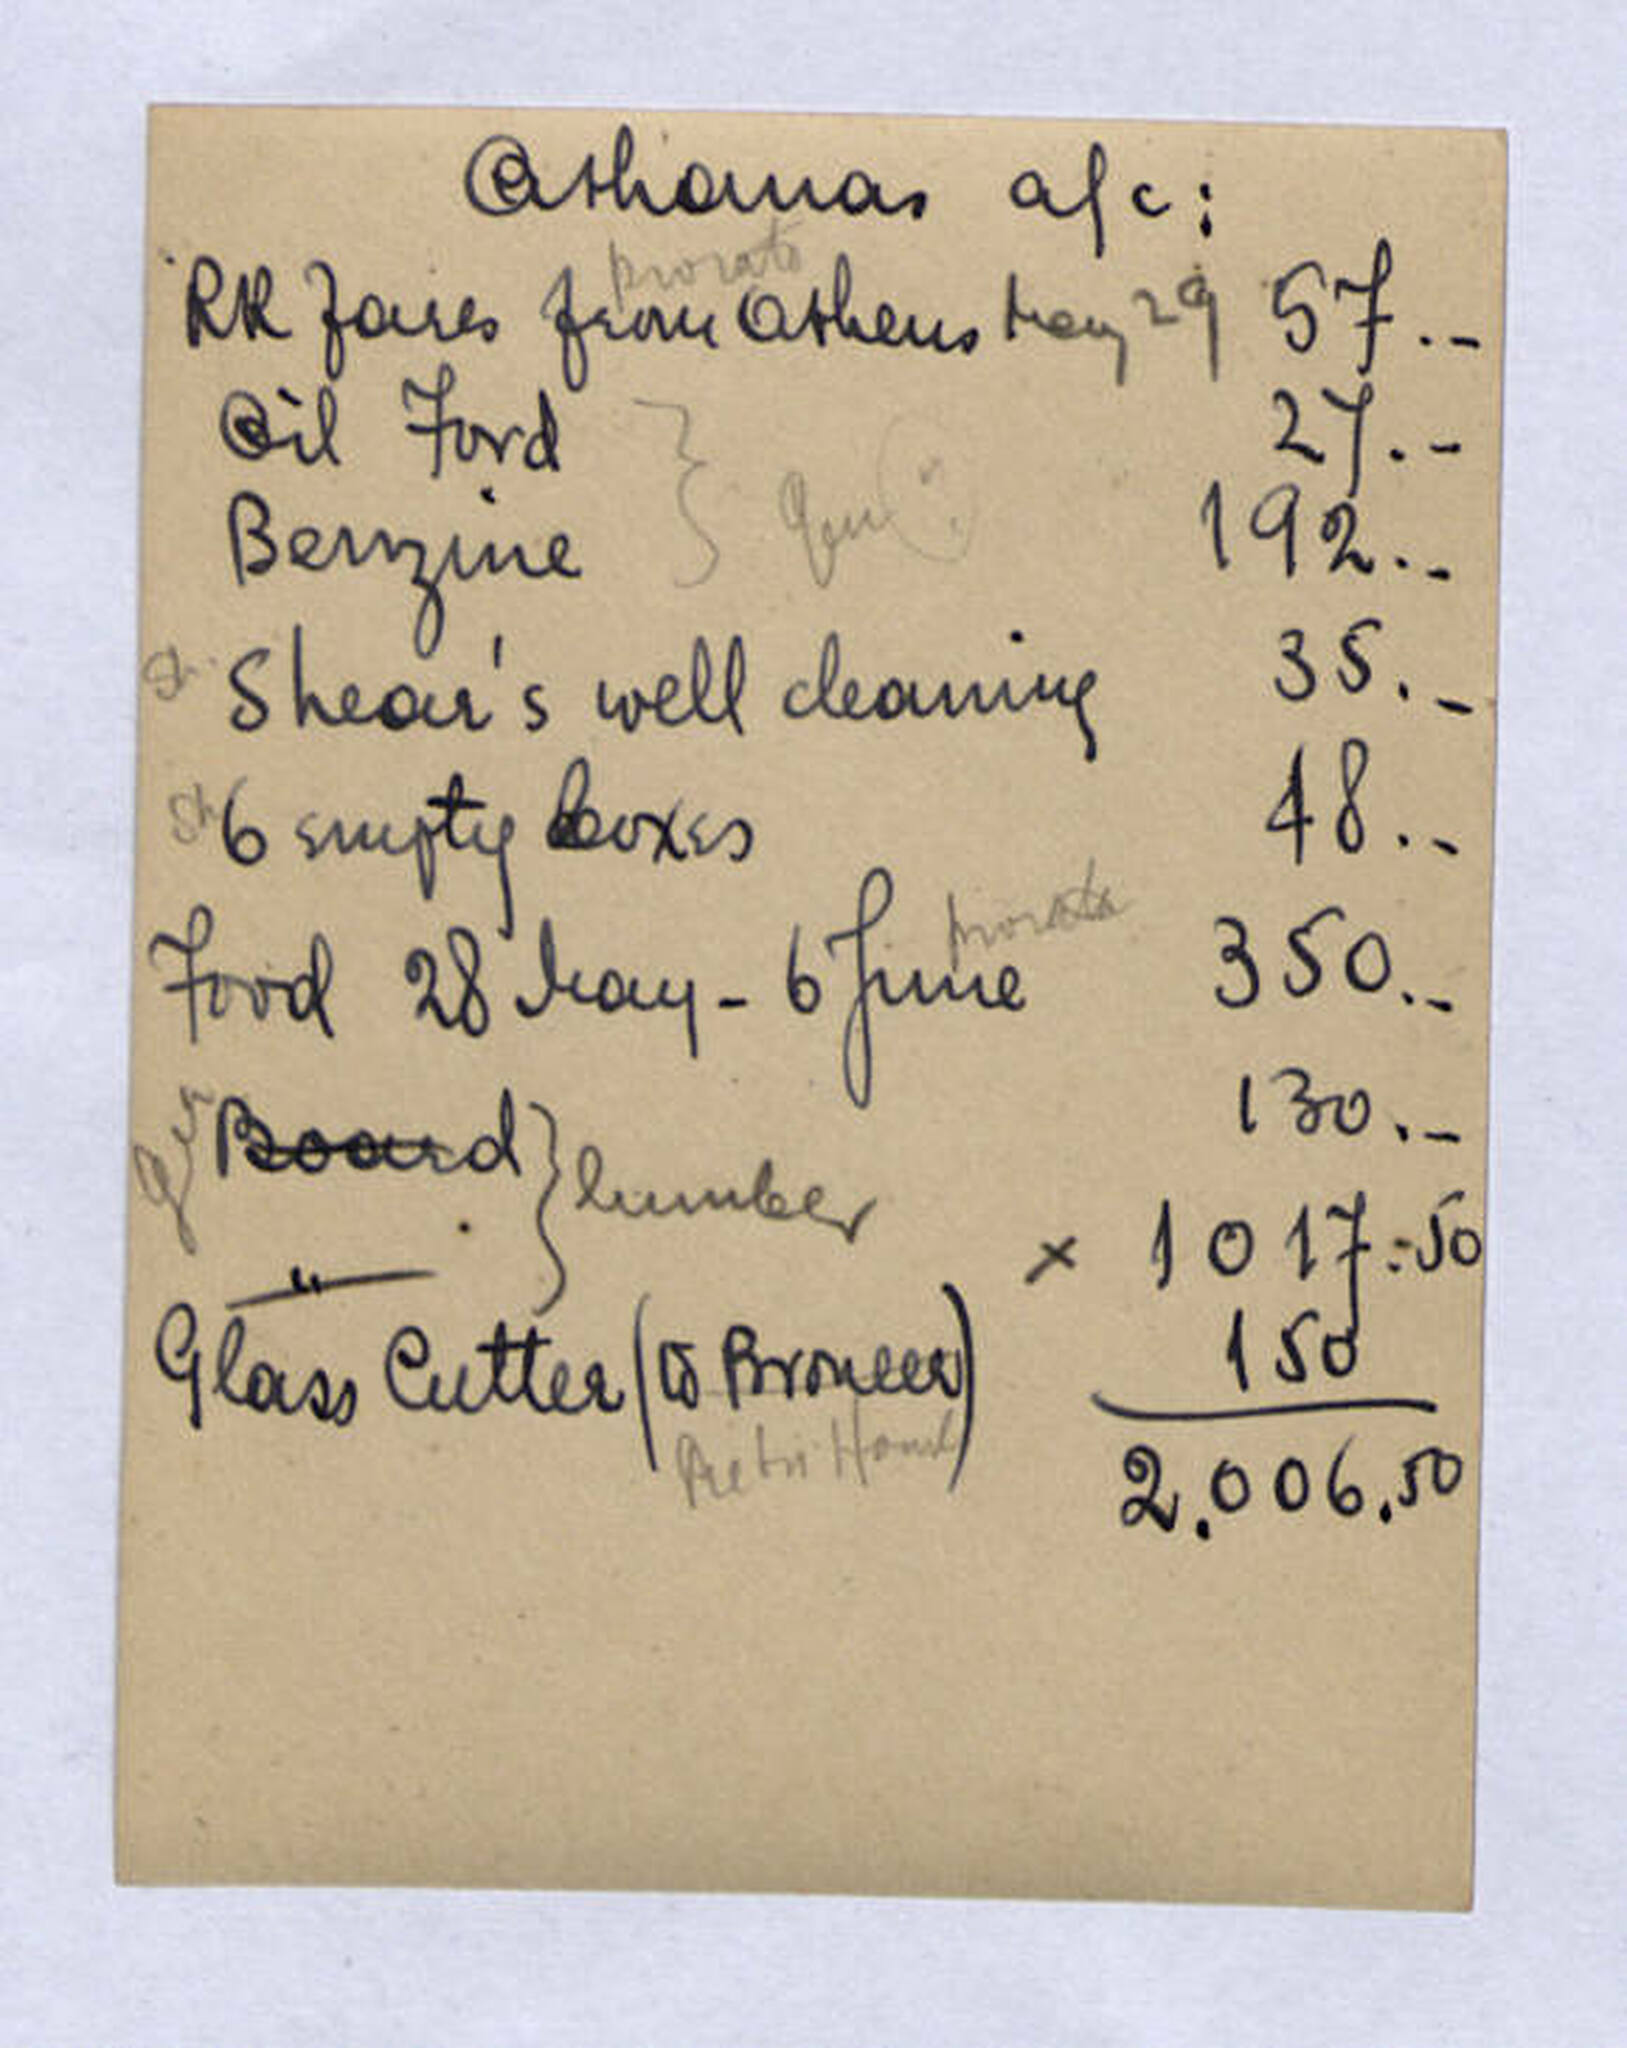 Athamas a/c:
prorata
RR Fares from Athens May 29 57.-
Oil Ford 27.-
} Gen
Benzine 192.-
Sh. Shear's well cleaning 35.-
Sh 6 empty boxes 48.-
prorata
Food 28 May - 6 June 350.-
Gen Board 130.-
} lumber
" x 1017.50
Glass Cutter (to Broneer) 150
2.006.50